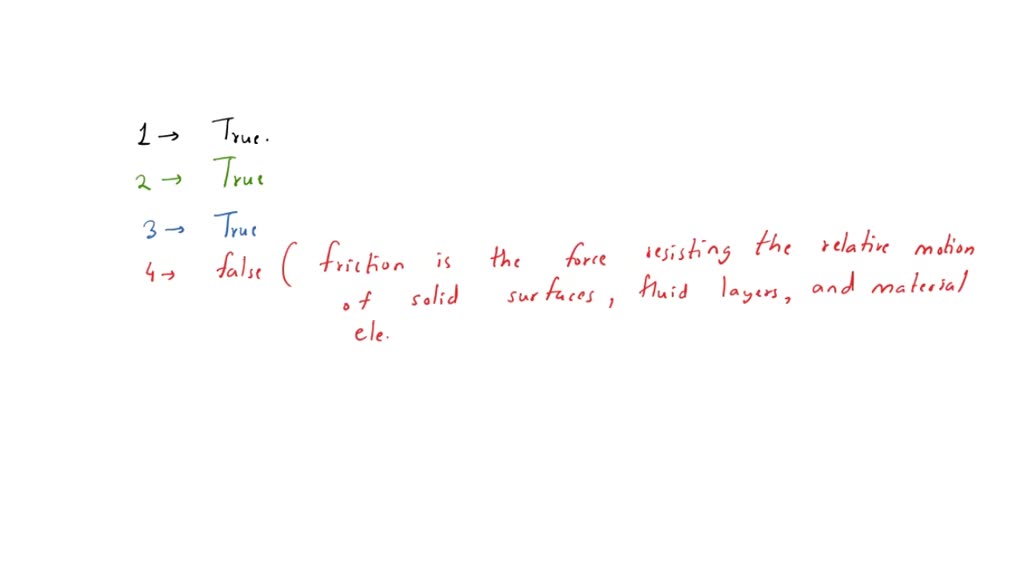 1 → True.
2 → True
3 → True
4 → false ( friction is the force resisting the relative motion
of solid surfaces, fluid layers, and material
ele.